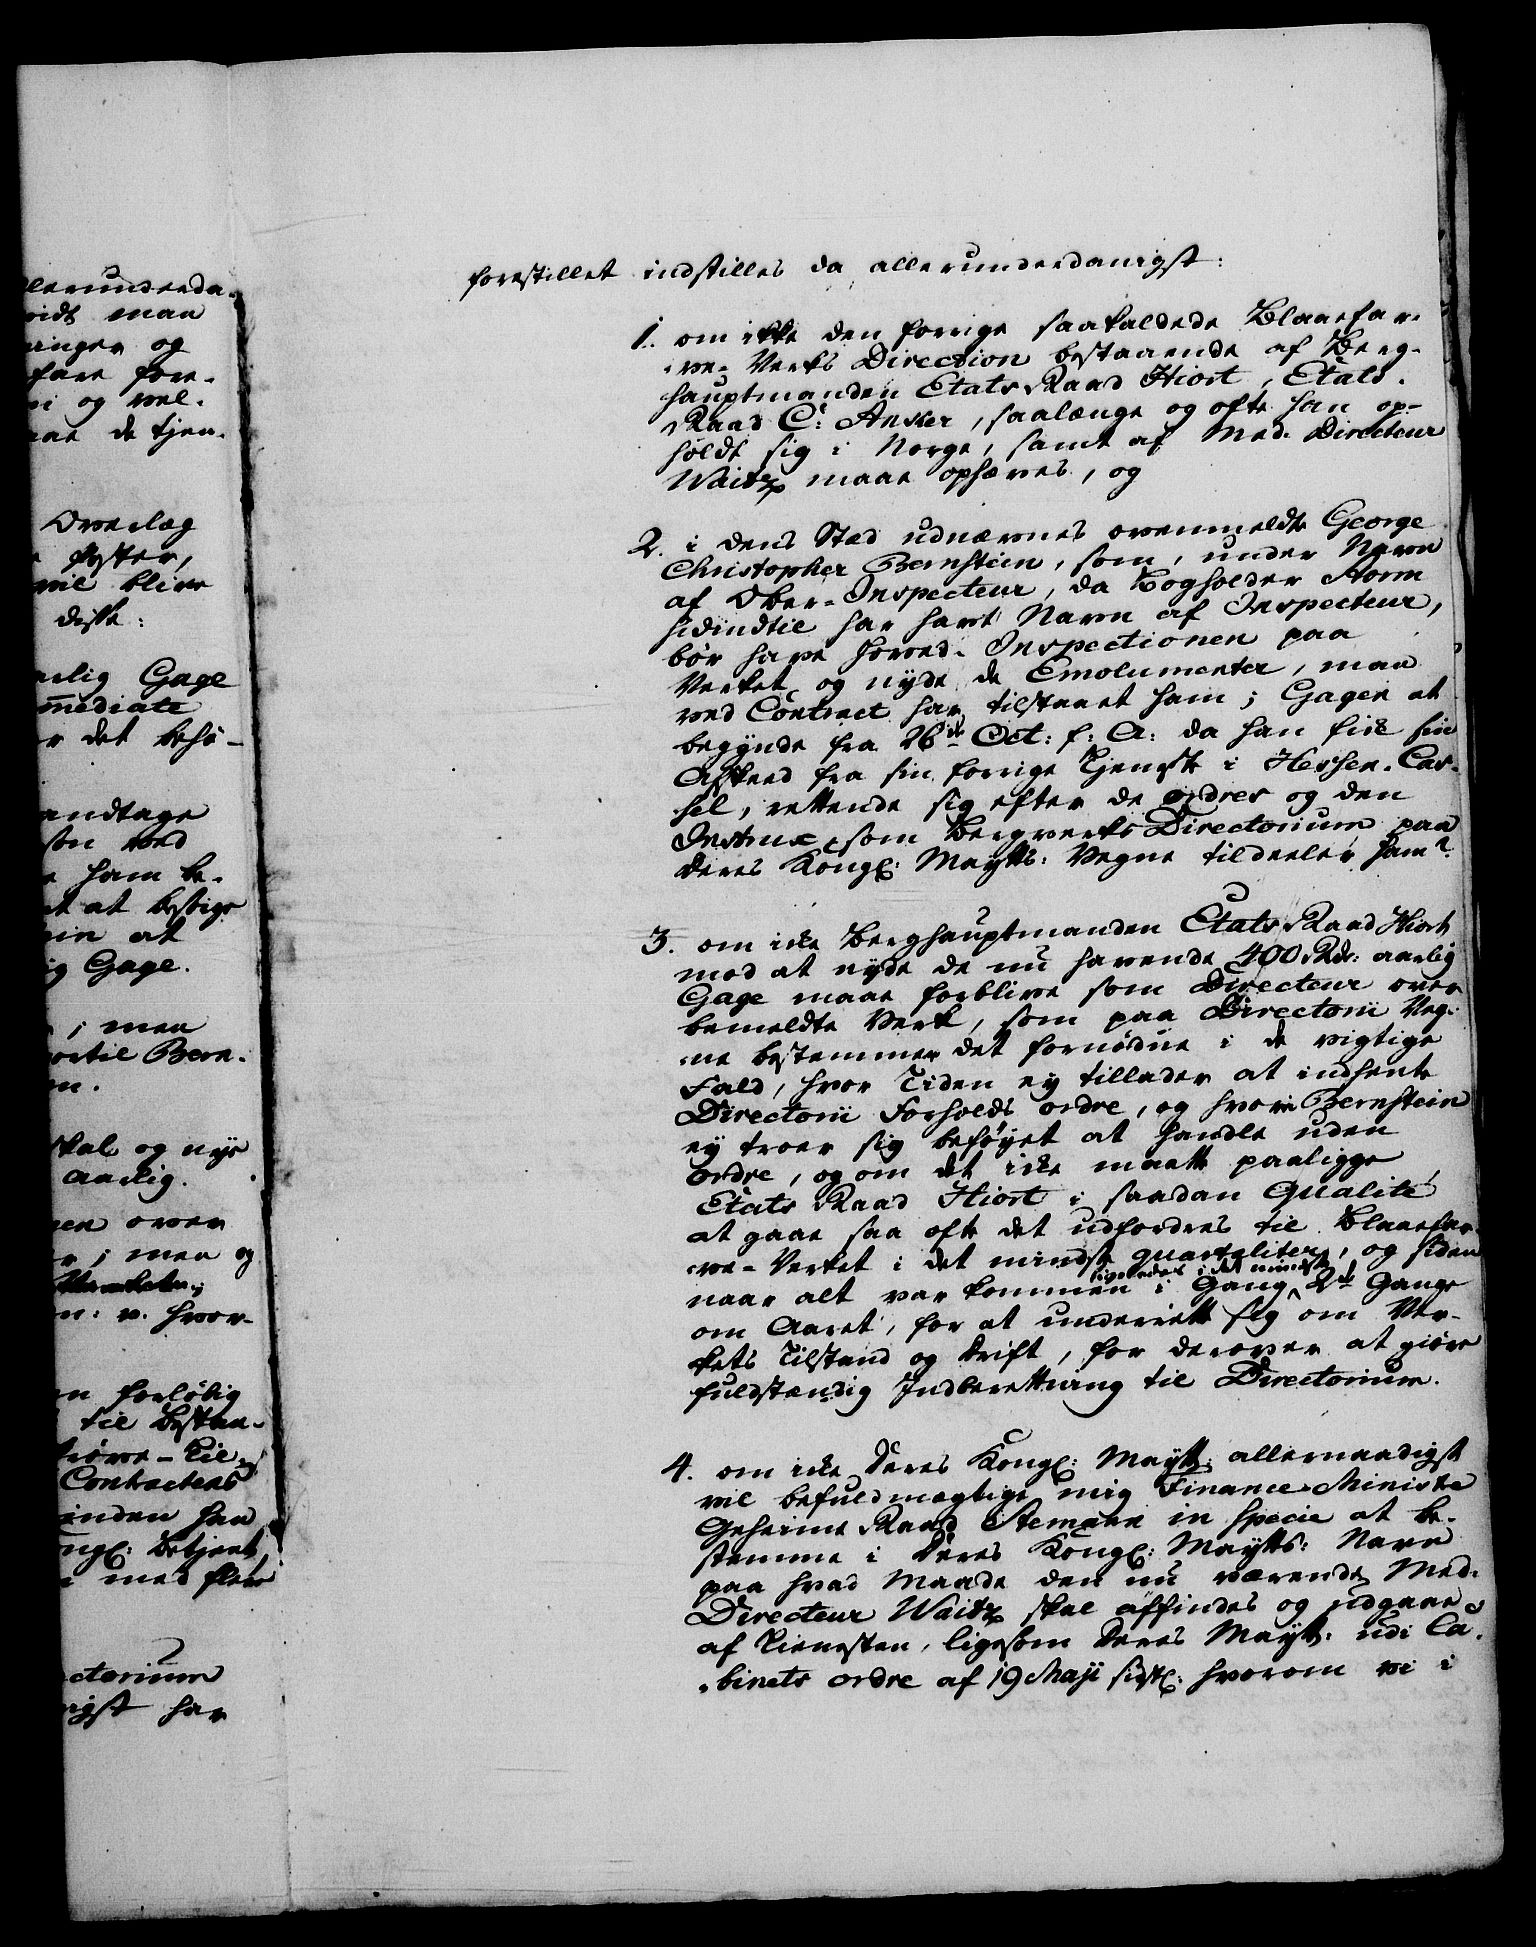 llerunderda-
vidt man
ringer og
fare fore-
vi og vel-
ene de tjen-
Overlæg
koster,
vil blive
disse:
arlig Gage
mmediate
r det behø-
andtage
søn med
e ham be-
et at bestige
ein at
ig Gage.
, men
hortil Bern-
n.
skal og nye
aarlig.
en over
r, men og
n: v. hvor-
en forløbig
til bestan-
Contractens
inden han
ngl: betjent
med flere
ctorium
igst har
forestillet indstilles da allerunderdanigst:
1. om ikke den forrige saakaldede Blaaefar-
ve-Verks Direction bestaaende af Berg-
hauptmanden Etats Raad Hiort, Etats-
Raad C: Anker, saalænge og ofte han op-
holdt sig i Norge, samt af Med. Directeur
Waitz maae ophæves, og
2. i dens Stæd udnævnes ovenmeldte George
Christopher Bernstein, som, under Navn
af Ober-Inspecteur, da Bogholder Storm
hidindtil har havt Navn af Inspecteur,
bør have hoved-Inspectionen paa
Verket og nyde de Emolumenter, man
ved Contract har tilstaaet ham; Gagen at
begynde fra 26de Oct: f: A: da han fik sin
Afskeed fra sin forrige Tjeneste i Hessen-Cas-
sel, rettende sig efter de ordres og den
Instrux, som Bergverks Directorium paa
Deres Kongl: Maytts: Vegne tildeeler ham.
3. om ikke Berghauptmanden Etats Raad Hiort
mod at nyde de nu havende 400 Rdr: aarlig
Gage maae forblive som Directeur over
bemeldte Verk, som paa Directorii Veg-
ne bestemmer det fornødne i de vigtige
Fald, hvor Tiden ey tillader at indhente
Directorii Forholds ordre, og hvori Bernstein
ey troer sig beføyet at handle uden
ordre, og om det ikke maatte paaligge
Etats Raad Hiort i saadan Qualité
at gaae saa ofte det udfordres til Blaaefar-
ve-Verket i det mindste quartaliter, og siden
naar alt var kommen i Gang ligeledes i det mindste 2de Gange
om Aaret, for at underrette sig om Ver-
kets Tilstand og Drift, for derover at giøre
fuldstændig Indberettning til Directorium.
4. om ikke Deres Kongl: Maytt: allernaadigst
vil befuldmægtige mig Finance-Ministe
Geheime Raad Stemann in specie at be-
stemme i Deres Kongl: Maytts: Navn
paa hvad Maade den nu værende Med.
Directeur Waitz skal affindes og udgaae
af Tienesten, ligesom Deres Maytt: udi Ca-
binets ordre af 19 Maji sidstl: hvorom vi i